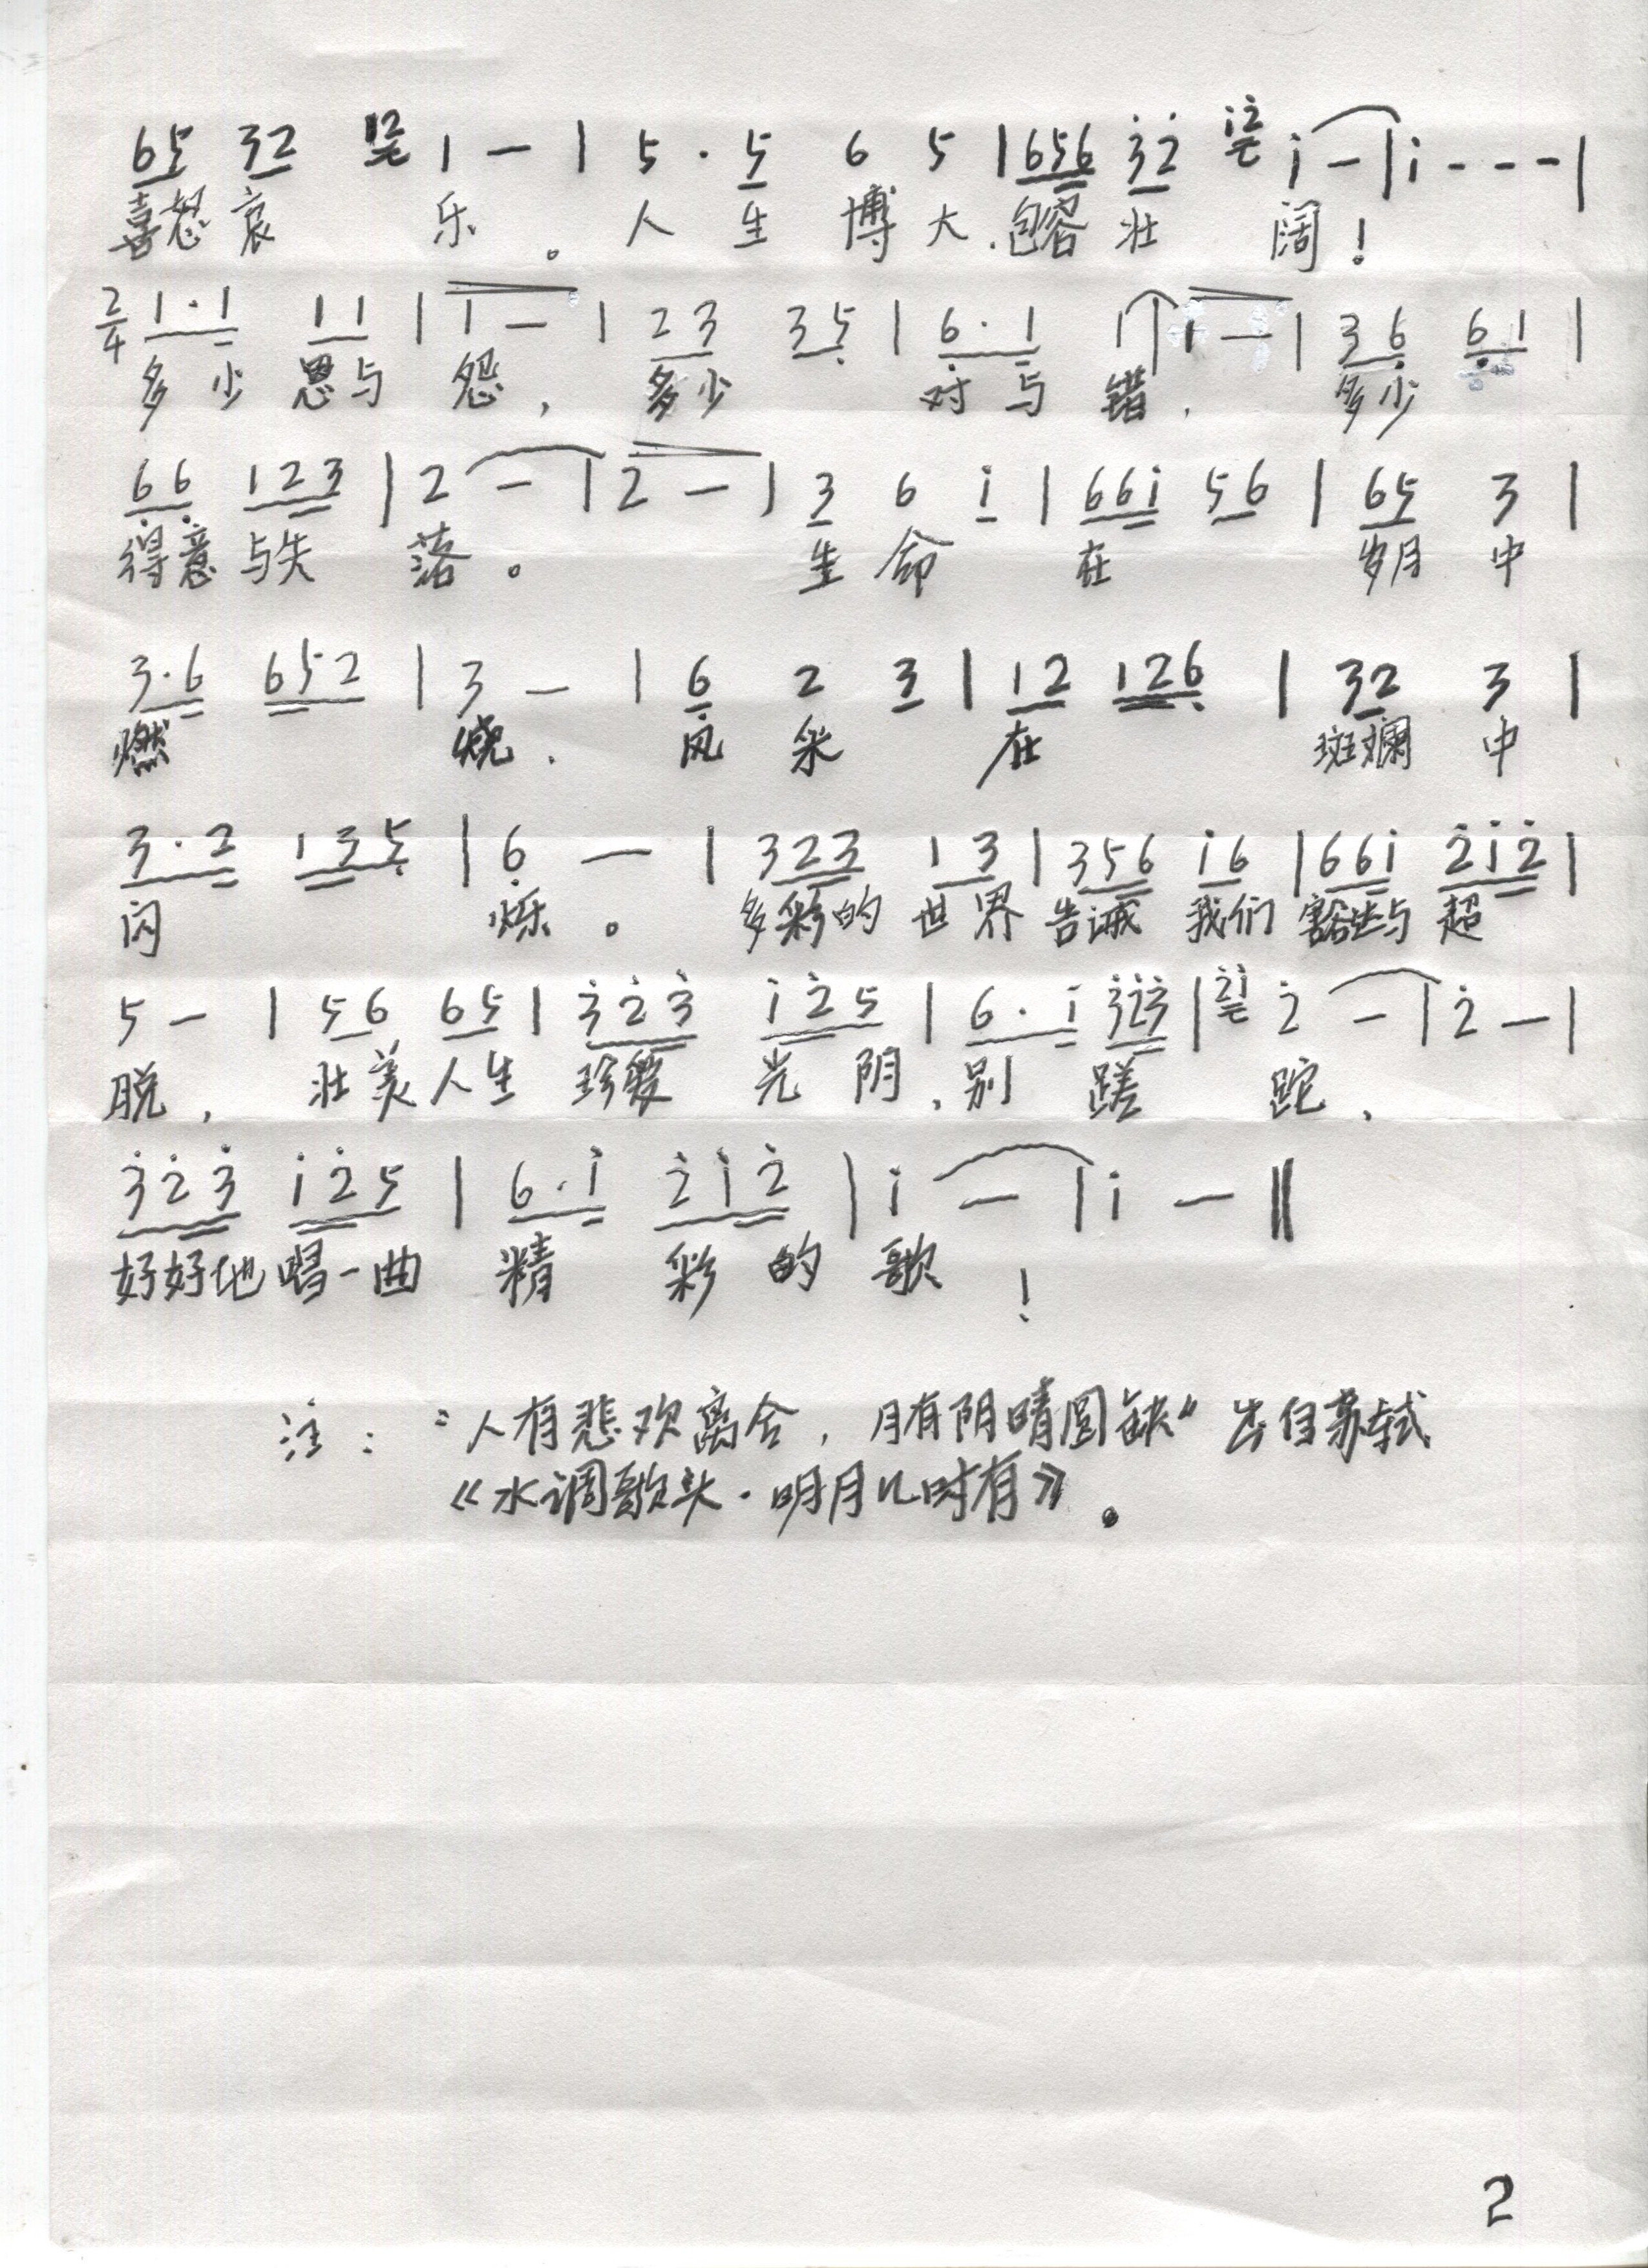 65 32 12 1 — | 5 · 5 6 5 | 656 3̇2̇ 1̇2̇ 1̇ — | 1̇ - - - |
喜怒哀 乐。人 生 博 大,包容 壮 阔!
2/4 1·1 11 | 1 — | 23 35̣ | 6̣·1 1 | 1 — | 36̣ 6̣1 |
多少 恩与 怨, 多少 对与 错, 多少
6̣6̣ 123 | 2 — | 2 — | 3 6 1̇ | 661̇ 56 | 65 3 |
得意与失 落。 生 命 在 岁月 中
3·6 652 | 3 — | 6̣ 2 3 | 12 126̣ | 32 3 |
燃 烧, 风 采 在 斑斓 中
3·2 135̣ | 6̣ — | 323 13 | 356 1̇6 | 661̇ 2̇1̇2̇ |
闪 烁。 多彩的 世界 告诫 我们 豁达与 超
5 — | 56 65 | 3̇2̇3̇ 1̇2̇5 | 6·1̇ 3̇2̇3̇ | 2̇1̇ 2̇ — | 2̇ — |
脱, 壮美人生 珍爱 光 阴,别 蹉 跎,
3̇2̇3̇ 1̇2̇5 | 6·1̇ 2̇1̇2̇ | 1̇ — | 1̇ — ‖
好好地唱一曲 精 彩 的 歌 !
注:“人有悲欢离合,月有阴晴圆缺”出自苏轼
《水调歌头·明月几时有》。
2